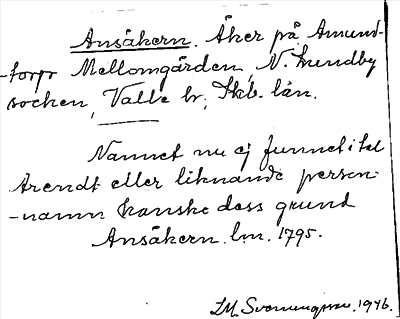 Ansåkern. Åker på Amund-
-torps Mellomgården, N. Lundby
socken, Valle hr; Skb. län.
Namnet nu ej funnet i
Arendt eller liknande person-
-namn kanske dess grund
Ansåkern. lm. 1795.
1946.